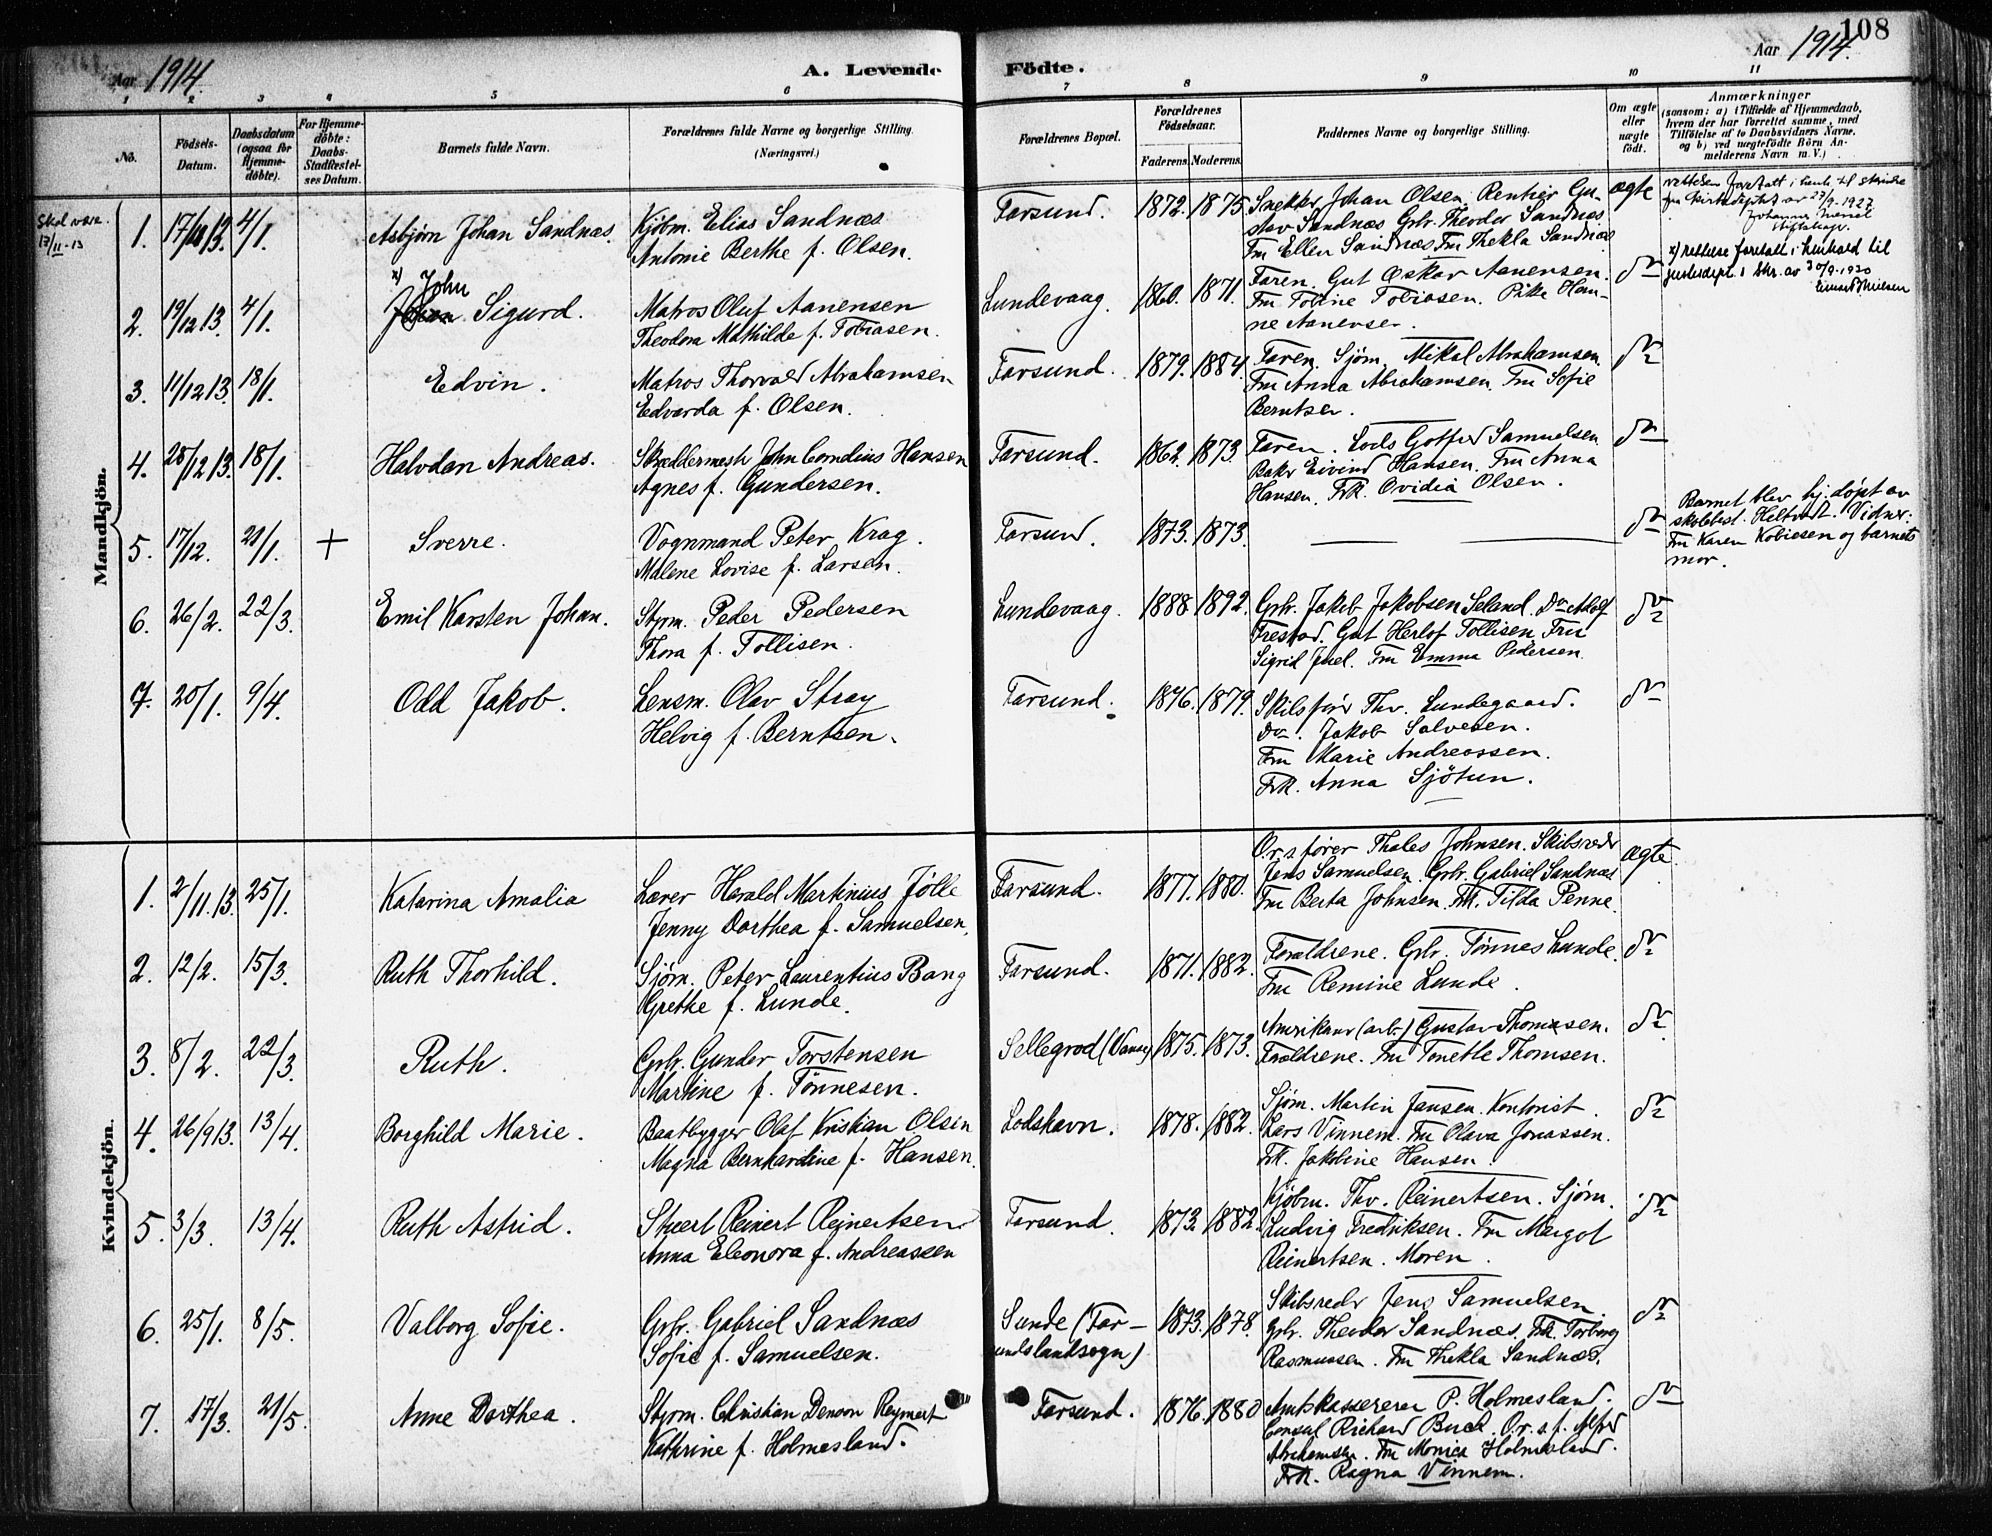 108
Aar 1914.
A. Levende Födte.
Aar 1914.
1 2 3 4 5 6 7 8 9 10 11
No.
Födsels-Datum.
Daabsdatum (ogsaa for Hjemme-döbte).
For Hjemme-döbte: Daabs-Stadfæstel-ses Datum.
Barnets fulde Navn.
Forældrenes fulde Navne og borgerlige Stilling.
(Næringsvei.)
Forældrenes Bopæl.
Forældrenes Födselsaar.
Faderens. Moderens.
Faddernes Navne og borgerlige Stilling.
Om ægte eller uægte födt.
Anmærkninger
(saasom: a) i Tilfælde af Hjemmedaab,
hvem der har forrettet samme, med
Tilföielse af to Daabsvidners Navne,
og b) ved uægtefödte Börn An-
melderens Navn m. V.)
Mandkjön.
Skal være 17/11-13
1. 17/10 13. 4/1. Asbjørn Johan Sandnæs. Kjøbm. Elias Sandnæs
Antonie Berthe f. Olsen.
Farsund. 1872. 1875. Snekker Johan Olsen. Rentier Gu-
stav Sandnæs Grbr. Theodor Sandnæs
Fru Ellen Sandnæs Fru Thekla Sandnæs
ægte
rettelsen foretatt i henh. til skrivelse
fra Kirkedeptet av 27/9-1927
2. 19/12 13. 4/1. x) John Sigurd. Matros Oluf Aanensen
Theodora Mathilde f. Tobiasen.
Lundevaag. 1860. 1871. Faren. Gut Oskar Aanensen.
Fru Tobine Tobiasen. Pike Han-
ne Aanensen.
do
x) rettelse foretatt i henhold til
justisdept.s skr. av 30/9-1920
3. 11/12 13. 18/1. Edvin. Matros Thorvald Abrahamsen
Edvarda f. Olsen.
Farsund. 1879. 1884. Faren. Sjøm. Mikal Abrahamsen.
Fru Anna Abrahamsen. Fru Sofie
Berntsen.
do
4. 28/12 13. 18/1. Halvdan Andreas. Skreddermestr John Cornelius Hansen
Agnes f. Gundersen.
Farsund. 1862. 1873. Faren. Lods Gotfred Samuelsen.
Baker Eivind Hansen. Fru Anna
Hansen. Frk. Ovidia Olsen.
do
5. 17/12. 21/1. + Sverre. Vognmand Peter Krag.
Malene Lovise f. Larsen.
Farsund. 1873. 1873. —
do
Barnet blev hj. døpt av
skolebest. Heltvedt. Vidner:
Fru Karen Kobiesen og barnets
mor.
6. 26/2. 22/3. Emil Karsten Johan. Styrm. Peder Pedersen
Thora f. Tollisen.
Lundevaag. 1888. 1892. Grbr. Jakob Jakobsen Seland. Do Adolf
Frestad. Gut Herlof Tollisen. Fru
Sigrid Juel. Fru Emma Pedersen.
do
7. 20/1. 9/4. Odd Jakob. Lensm. Olav Stray
Helvig f. Berntsen.
Farsund. 1876. 1879. Skibsfører Thv. Lundegaard.
Do. Jakob Salvesen.
Fru Marie Andreassen.
Frk. Anna Sjötun.
do
Kvindekjön.
1. 2/11. 13. 25/1. Katarina Amalia Lærer Harald Martinius Jölle
Jenny Dorthea f. Samuelsen.
Farsund. 1877. 1880. O.r.s.fører Thales Johnsen. Skibsreder
Jens Samuelsen. Grbr. Gabriel Sandnæs
Fru Berta Johnsen. Frk. Tilda Penne.
ægte
2. 12/2. 15/3. Ruth Thorhild. Sjøm. Peter Laurentius Bang
Grethe f. Lunde.
Farsund. 1871. 1882. Forældrene. Grbr. Tønnes Lunde.
Fru Remine Lunde.
do
3. 8/2. 22/3. Ruth. Grbr. Gunder Torstensen
Martine f. Tønnesen.
Sellegrod (Vanse) 1875. 1873. Amerikaner (arb.) Gustav Thomsen.
Forældrene. Fru Tonette Thomsen.
do
4. 26/9 13. 13/4. Borghild Marie. Baatbygger Olaf Kristian Olsen
Magna Bernhardine f. Hansen.
Lodshavn. 1878. 1882. Sjøm. Martin Jansen. Kontorist
Lars Vinnem. Fru Olava Jonassen.
Frk. Jakoline Hansen.
do
5. 3/3. 13/4. Ruth Astrid. Stuert Reinert Reinertsen
Anna Eleonora f. Andreassen
Farsund. 1873. 1882. Kjøbm. Thv. Reinertsen. Sjøm.
Ludvig Fredriksen. Fru Margot
Reinertsen. Moren.
do
6. 25/1. 8/5. Valborg Sofie. Grbr. Gabriel Sandnæs
Sofie f. Samuelsen.
Sunde (Far-
sunds landsogn) 1873. 1878. Skibsreder Jens Samuelsen.
Grbr. Theodor Sandnæs. Frk. Torborg
Rasmussen. Fru Thekla Sandnæs.
do
7. 17/3. 21/5. Anne Dorthea. Styrm. Christian Denson Reymert
Kathrine f. Holmesland.
Farsund. 1876. 1880 Amtskasserer P. Holmesland.
Consul Richard Buch. O.r.s.f. Alfred
Abrahamsen. Fru Monica Holmesland.
Frk. Ragna Vinnem.
do